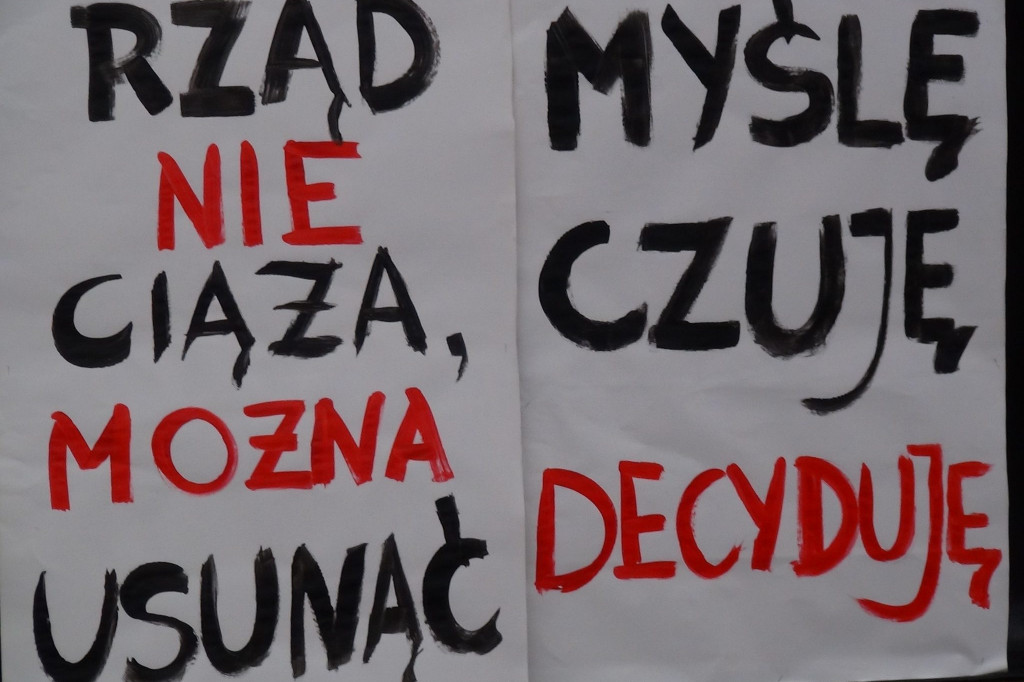 RZĄD
NIE
CIĄŻA,
MOŻNA
USUNĄĆ
MYŚLĘ
CZUJĘ
DECYDUJĘ